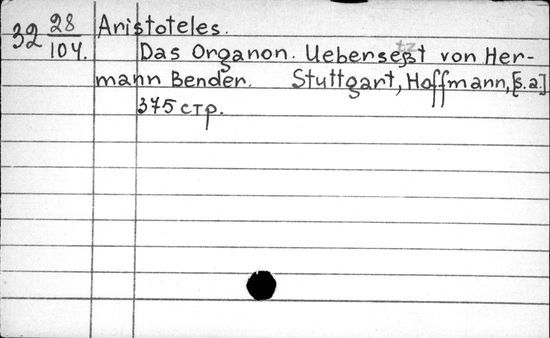 32 28/104.
Aristoteles.
Das Organon. Uebersetzt von Her-
mann Bender. Stuttgart, Hoffmann, [s.a.]
375 стр.